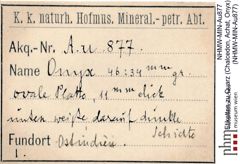 K. k. naturh. Hofmus. Mineral.-petr. Abt.
Akq.-Nr. A.u. 877.
Name Onyx 46:34 mm gr.
ovale Platte, 11 mm dick
unten weiße darauf dunkle
Schichte
Fundort Ostindien.
NHMW-MIN-Au877
Etiketten zu Quarz (Chalcedon, Achat, Onyx)
(NHMW-MIN-Au877)
nhm
museum wien